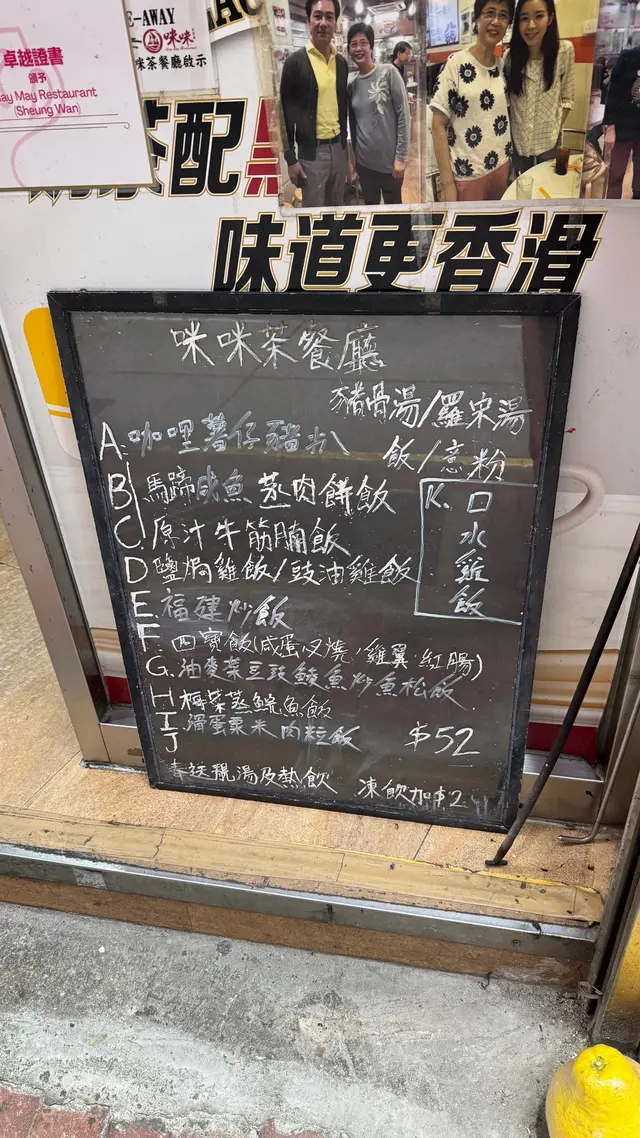 E-AWAY
咪咪
咪茶餐廳啟示
卓越證書
頒予
May Restaurant
(Sheung Wan)
茶配
味道更香滑
咪咪茶餐廳
豬骨湯/羅宋湯
A. 咖哩薯仔豬扒 飯/意粉
B 馬蹄咸魚蒸肉餅飯
K. 口水雞飯
C. 原汁牛筋腩飯
D 鹽焗雞飯/豉油雞飯
E. 福建炒飯
F. 四寶飯(咸蛋叉燒,雞翼,紅腸)
G. 油麥菜豆豉鯪魚炒魚松飯
H 梅菜蒸鯇魚飯
I 滑蛋粟米肉粒飯 $52
J
奉送靚湯及熱飲 凍飲加$2